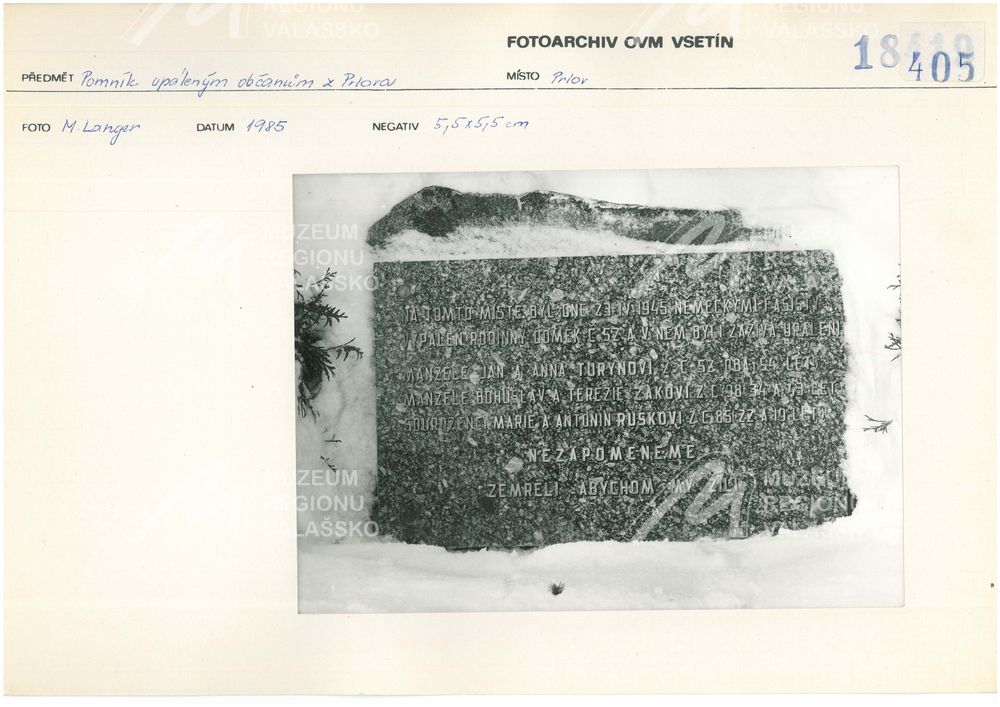 FOTOARCHIV OVM VSETÍN
405
PŘEDMĚT Pomník upáleným občanům z Prlova
MÍSTO Prlov
FOTO M. Langer DATUM 1985 NEGATIV 5,5x5,5 cm
NA TOMTO MÍSTĚ BYL DNE 23.IV.1945 NĚMECKÝMI FAŠISTY
VYPÁLEN RODINNÝ DOMEK Č.52 A V NĚM BYLI ZAŽIVA UPÁLENI
MANŽELÉ JAN A ANNA TURÝNOVI, Z Č. 52 OBA 54 LET
MANŽELÉ BOHUSLAV A TEREZIE ŽÁKOVI Z Č. 98 34 A 29 LET
SOUROZENCI MARIE A ANTONÍN RUSKOVI Z Č.85 22 A 19 LET
NEZAPOMENEME
ZEMŘELI ABYCHOM MY ŽILI
MUZEUM
REGIONU
VALAŠSKO